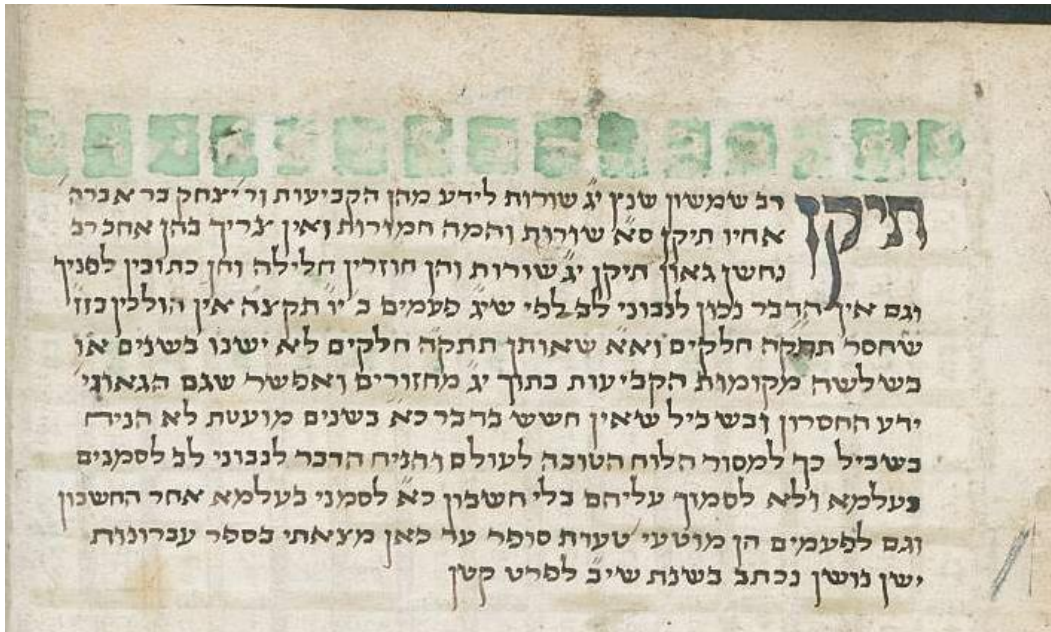 תיקן רב שמשון שנץ י״ג שורות לידע מהן הקביעות ור׳ יצחק בר אברה׳
אחיו תיקן ס״א שורות והמה חמורות ואין צריך בהן אחב רב
נחשון גאון תיקן י״ג שורות והן חוזרין חלילה והן כתובין לפניך
וגם אין הדבר נכון לנבוני לב לפי שי״ג פעמים ב׳ י״ו תקצ״ה אין הולכין בזז׳
שחסר תתק״ה חלקים וא״א שאותן תתק״ה חלקים לא ישנו בשנים או
בשלשה מקומות הקביעות בתוך י״ג מחזורים ואפשר שגם הגאוני׳
ידע החסרון ובשביל שאין חשש בדבר כ״א בשנים מועטת לא הניח
בשביל כך למסור הלוח הטובה לעולם והניח הדבר לנבוני לב לסמנים
בעלמא ולא לסמוך עליהם בלי חשבון כ״א לסמני בעלמא אחר החשבון
וגם לפעמים הן מוטעי׳ טעות סופר עד כאן מצאתי בספר עברונות
ישן נושן נכתב בשנת שי״ב לפרט קטן